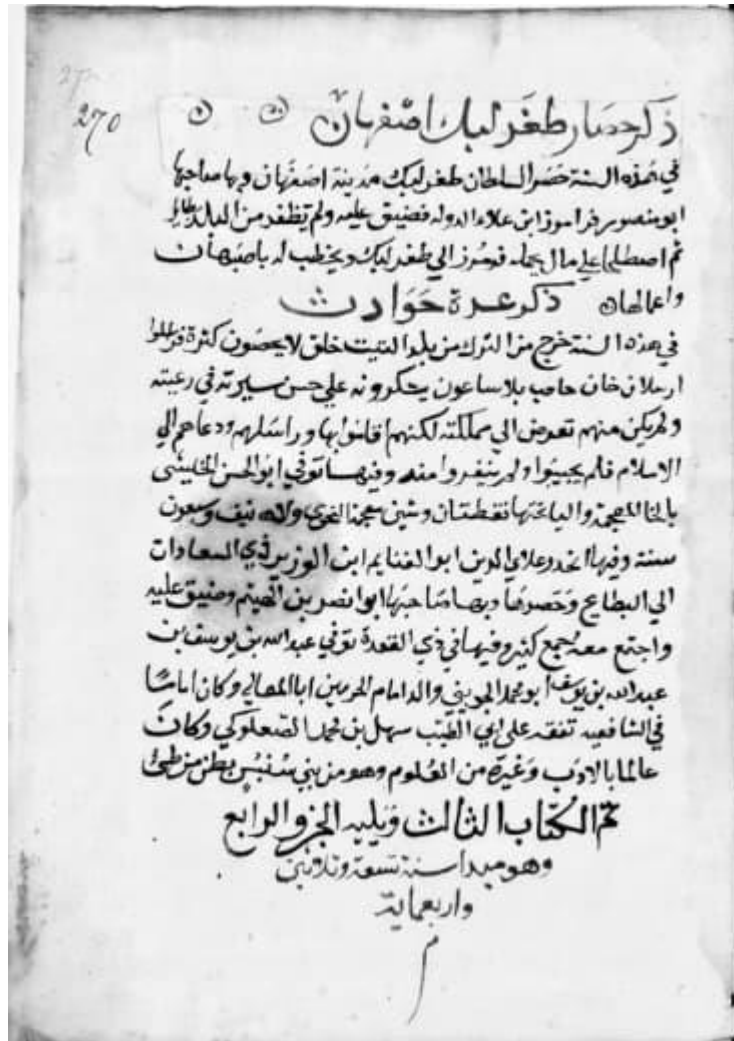 270
ذكر حصار طغرلبك اصفهان
في هذه السنة حصر السلطان طغرلبك مدينة اصفهان وبها صاحبها
ابو منصور فراموز ابن علاء الدوله فضيق عليه ولم يظفر من البلد بطائل
ثم اصطلحا علي مال يحمله فرامرز الي طغرلبك ويخطب له باصبهان
واعمالها ذكر عدة حوادث
في هذه السنة خرج من الترك من بلد التبت خلق لا يحصون كثرة فراسلوا
ارسلان خان صاحب بلاساعون يشكرونه علي حسن سيرته في رعيته
ولم يكن منهم تعرض الي مملكته لكنهم اقاموا بها وراسلهم ودعاهم الي
الاسلام فلم يجيبوا ولم ينفروا منه وفيها توفي ابو الحسن الخيشي
بالخا المعجمة واليا تحتها نقطتان وشين معجمة النحوي وله نيف وسبعون
سنة وفيها انحدر علاي الدين ابو الغنايم ابن الوزير ذي السعادات
الي البطايح وحصرها وبها صاحبها ابو نصر بن الهيثم وضيق عليه
واجتمع معه جمع كثير وفيها في ذي القعدة توفي عبد الله بن يوسف بن
عبد الله بن يوسف ابو محمد الجويني والد امام الحرمين ابا المعالي وكان اماما
في الشافعيه تفقه على ابي الطيب سهل بن محمد الصعلوكي وكان
عالما بالادب وغيره من العلوم وهو من بني سنبس بطن من طئ
تم الكتاب الثالث ويليه الجزو الرابع
وهو مبدا سنة تسعة وثلاثين
واربعماية
م